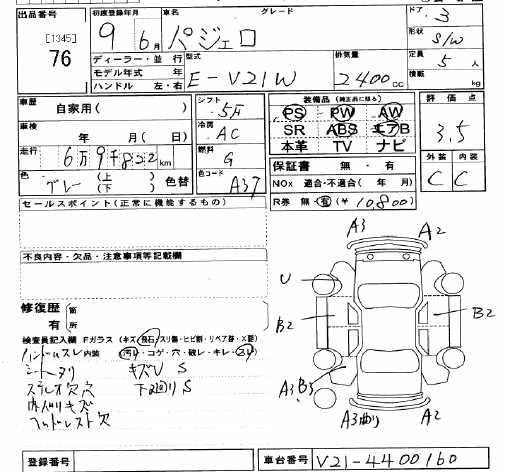 出品番号 初度登録年月 車名 グレード ドア 3
[1345] 9年 6月 パジェロ 形状 S/W
76 ディーラー・並行 型式 排気量 定員 5人
モデル年式 年 E-V21W 2400cc 積載 kg
ハンドル 左・右
車歴 自家用( ) シフト 5F 装備品 (純正品に限る) 評価点
車検 年 月( 日) 冷房 AC PS PW AW 3.5
SR ABS エアB
走行 6万9千822km 燃料 G 本革 TV ナビ 外装 内装
色 グレー (上)(下) 色替 色コード A37 保証書 無・有 C C
NOx 適合・不適合( 年 月)
セールスポイント(正常に機能するもの) R券 無・有(¥10,800)
A3 A2
不良内容・欠品・注意事項等記載欄
U
B2 B2
修復歴 箇
有 所
検査員記入欄 Fガラス(キズ・飛石・スリ傷・ヒビ割・リペア跡・X要)
ハンドルスレ 内装 (汚れ・コゲ・穴・破レ・キレ・スレ)
シートヘタリ キズU S
ステレオ欠穴 下廻りS A3 B3
内ハリキズ
ヘッドレスト欠 A3曲り A2
登録番号 車台番号 V21-4400160